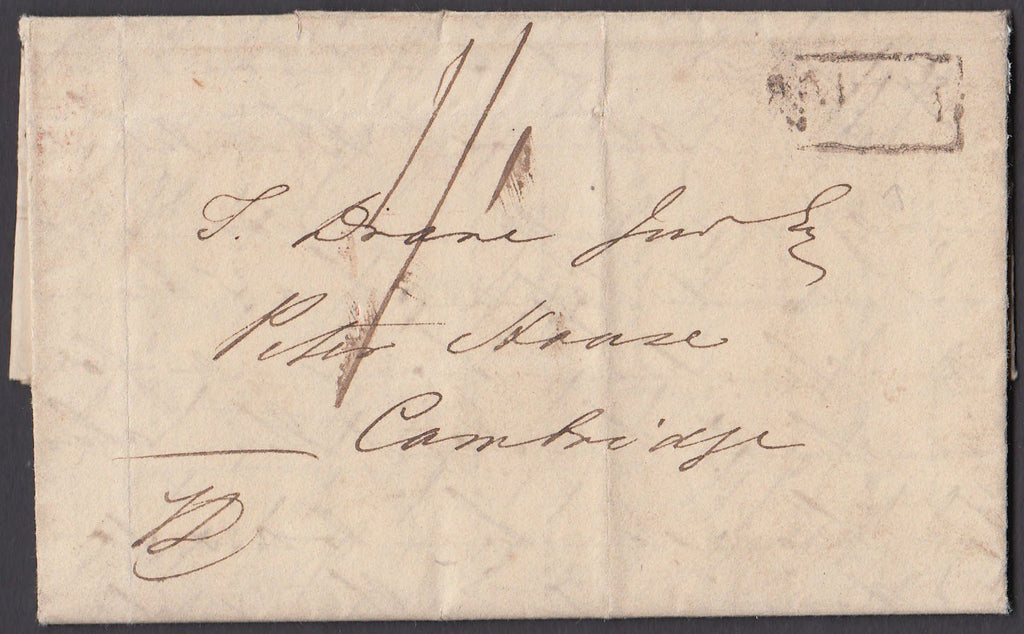 11
T. Drane Junr Esq
Peter House
Cambridge